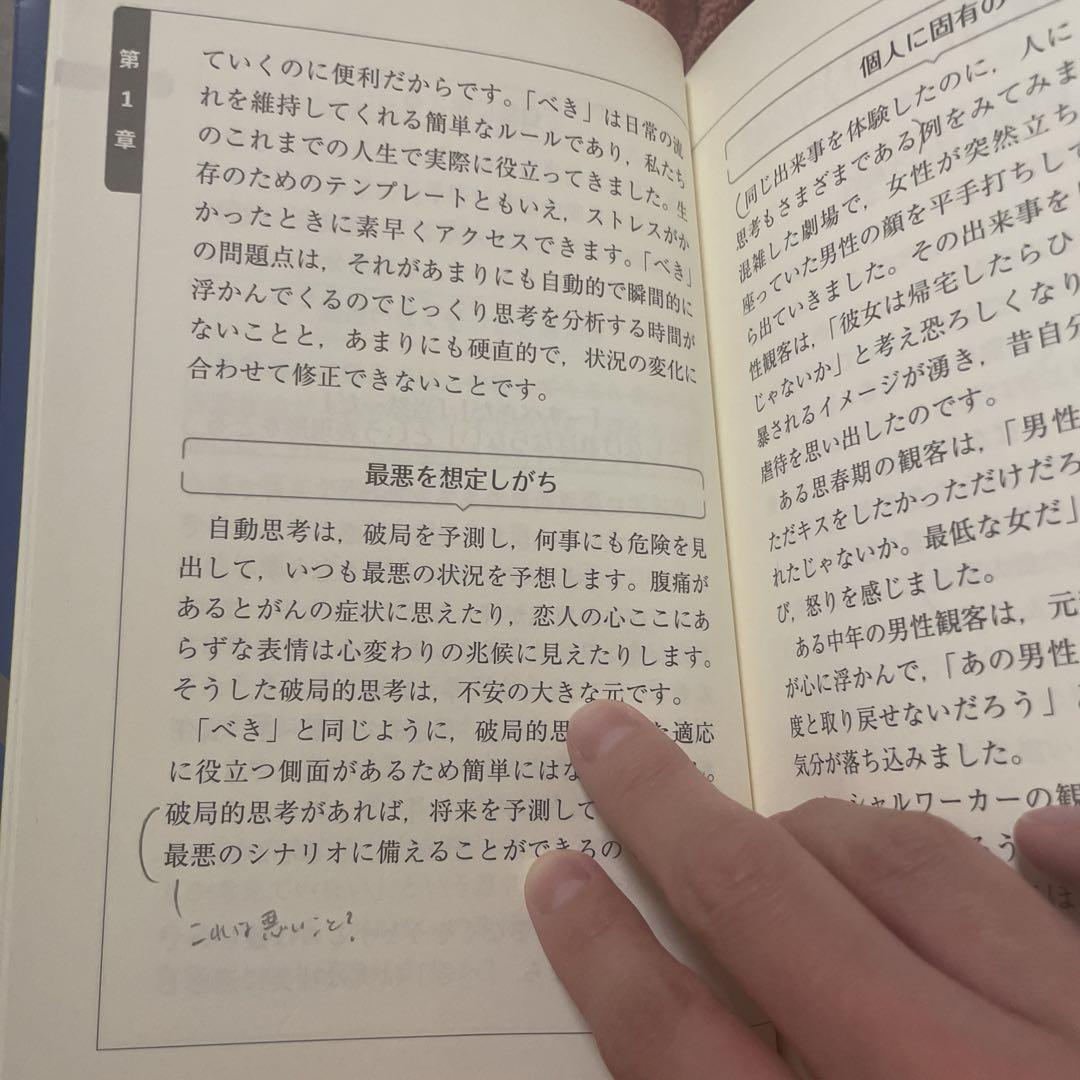 第1章
ていくのに便利だからです。「べき」は日常の流
れを維持してくれる簡単なルールであり，私たち
のこれまでの人生で実際に役立ってきました。生
存のためのテンプレートともいえ，ストレスがか
かったときに素早くアクセスできます。「べき」
の問題点は，それがあまりにも自動的で瞬間的に
浮かんでくるのでじっくり思考を分析する時間が
ないことと，あまりにも硬直的で，状況の変化に
合わせて修正できないことです。
最悪を想定しがち
自動思考は，破局を予測し，何事にも危険を見
出して，いつも最悪の状況を予想します。腹痛が
あるとがんの症状に思えたり，恋人の心ここにあ
らずな表情は心変わりの兆候に見えたりします。
そうした破局的思考は，不安の大きな元です。
「べき」と同じように，破局的思 適応
に役立つ側面があるため簡単には
破局的思考があれば，将来を予測して
最悪のシナリオに備えることができるの
これは悪いこと?
個人に固有の
同じ出来事を体験したのに，人に
思考もさまざまである例をみてみま
混雑した劇場で，女性が突然立ち
座っていた男性の顔を平手打ちして
ら出ていきました。その出来事を
性観客は，「彼女は帰宅したらひ
じゃないか」と考え恐ろしくなり
暴されるイメージが湧き，昔自分
虐待を思い出したのです。
ある思春期の観客は，「男性
ただキスをしたかっただけだろ
れたじゃないか。最低な女だ」
び，怒りを感じました。
ある中年の男性観客は，元
が心に浮かんで，「あの男性
度と取り戻せないだろう」
気分が落ち込みました。
シャルワーカーの観